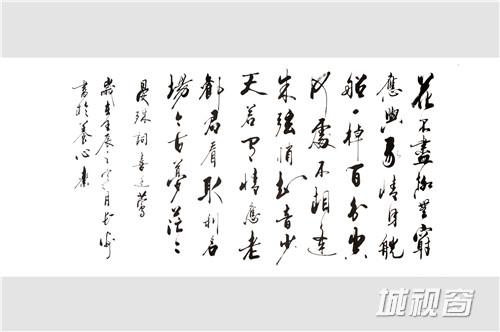 花不盡柳無窮
應與我情同觥
船一棹百分空
何處不相逢
朱弦悄知音少
天若有情應老
勸君看取利名
場今古夢茫茫
晏殊詞喜遷鶯
歲在壬辰之月
書於養心齋
城视窗